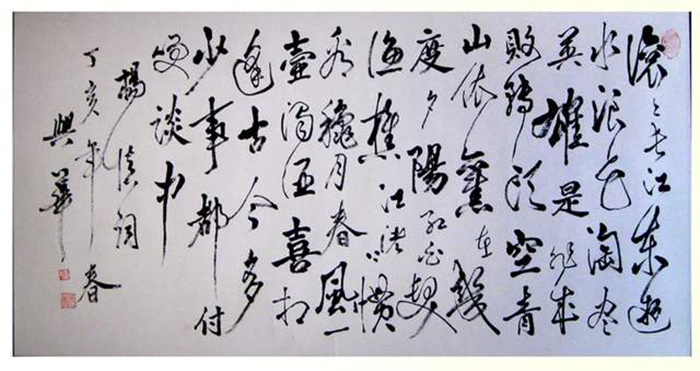 滚々长江东逝
水浪花淘尽
英雄是非成
敗转头空青
山依舊在幾
度夕陽红白髮
渔樵江渚上惯
看穐月春風一
壷濁酒喜相
逢古今多
少事都付
笑談中
楊慎词
丁亥年春
興華